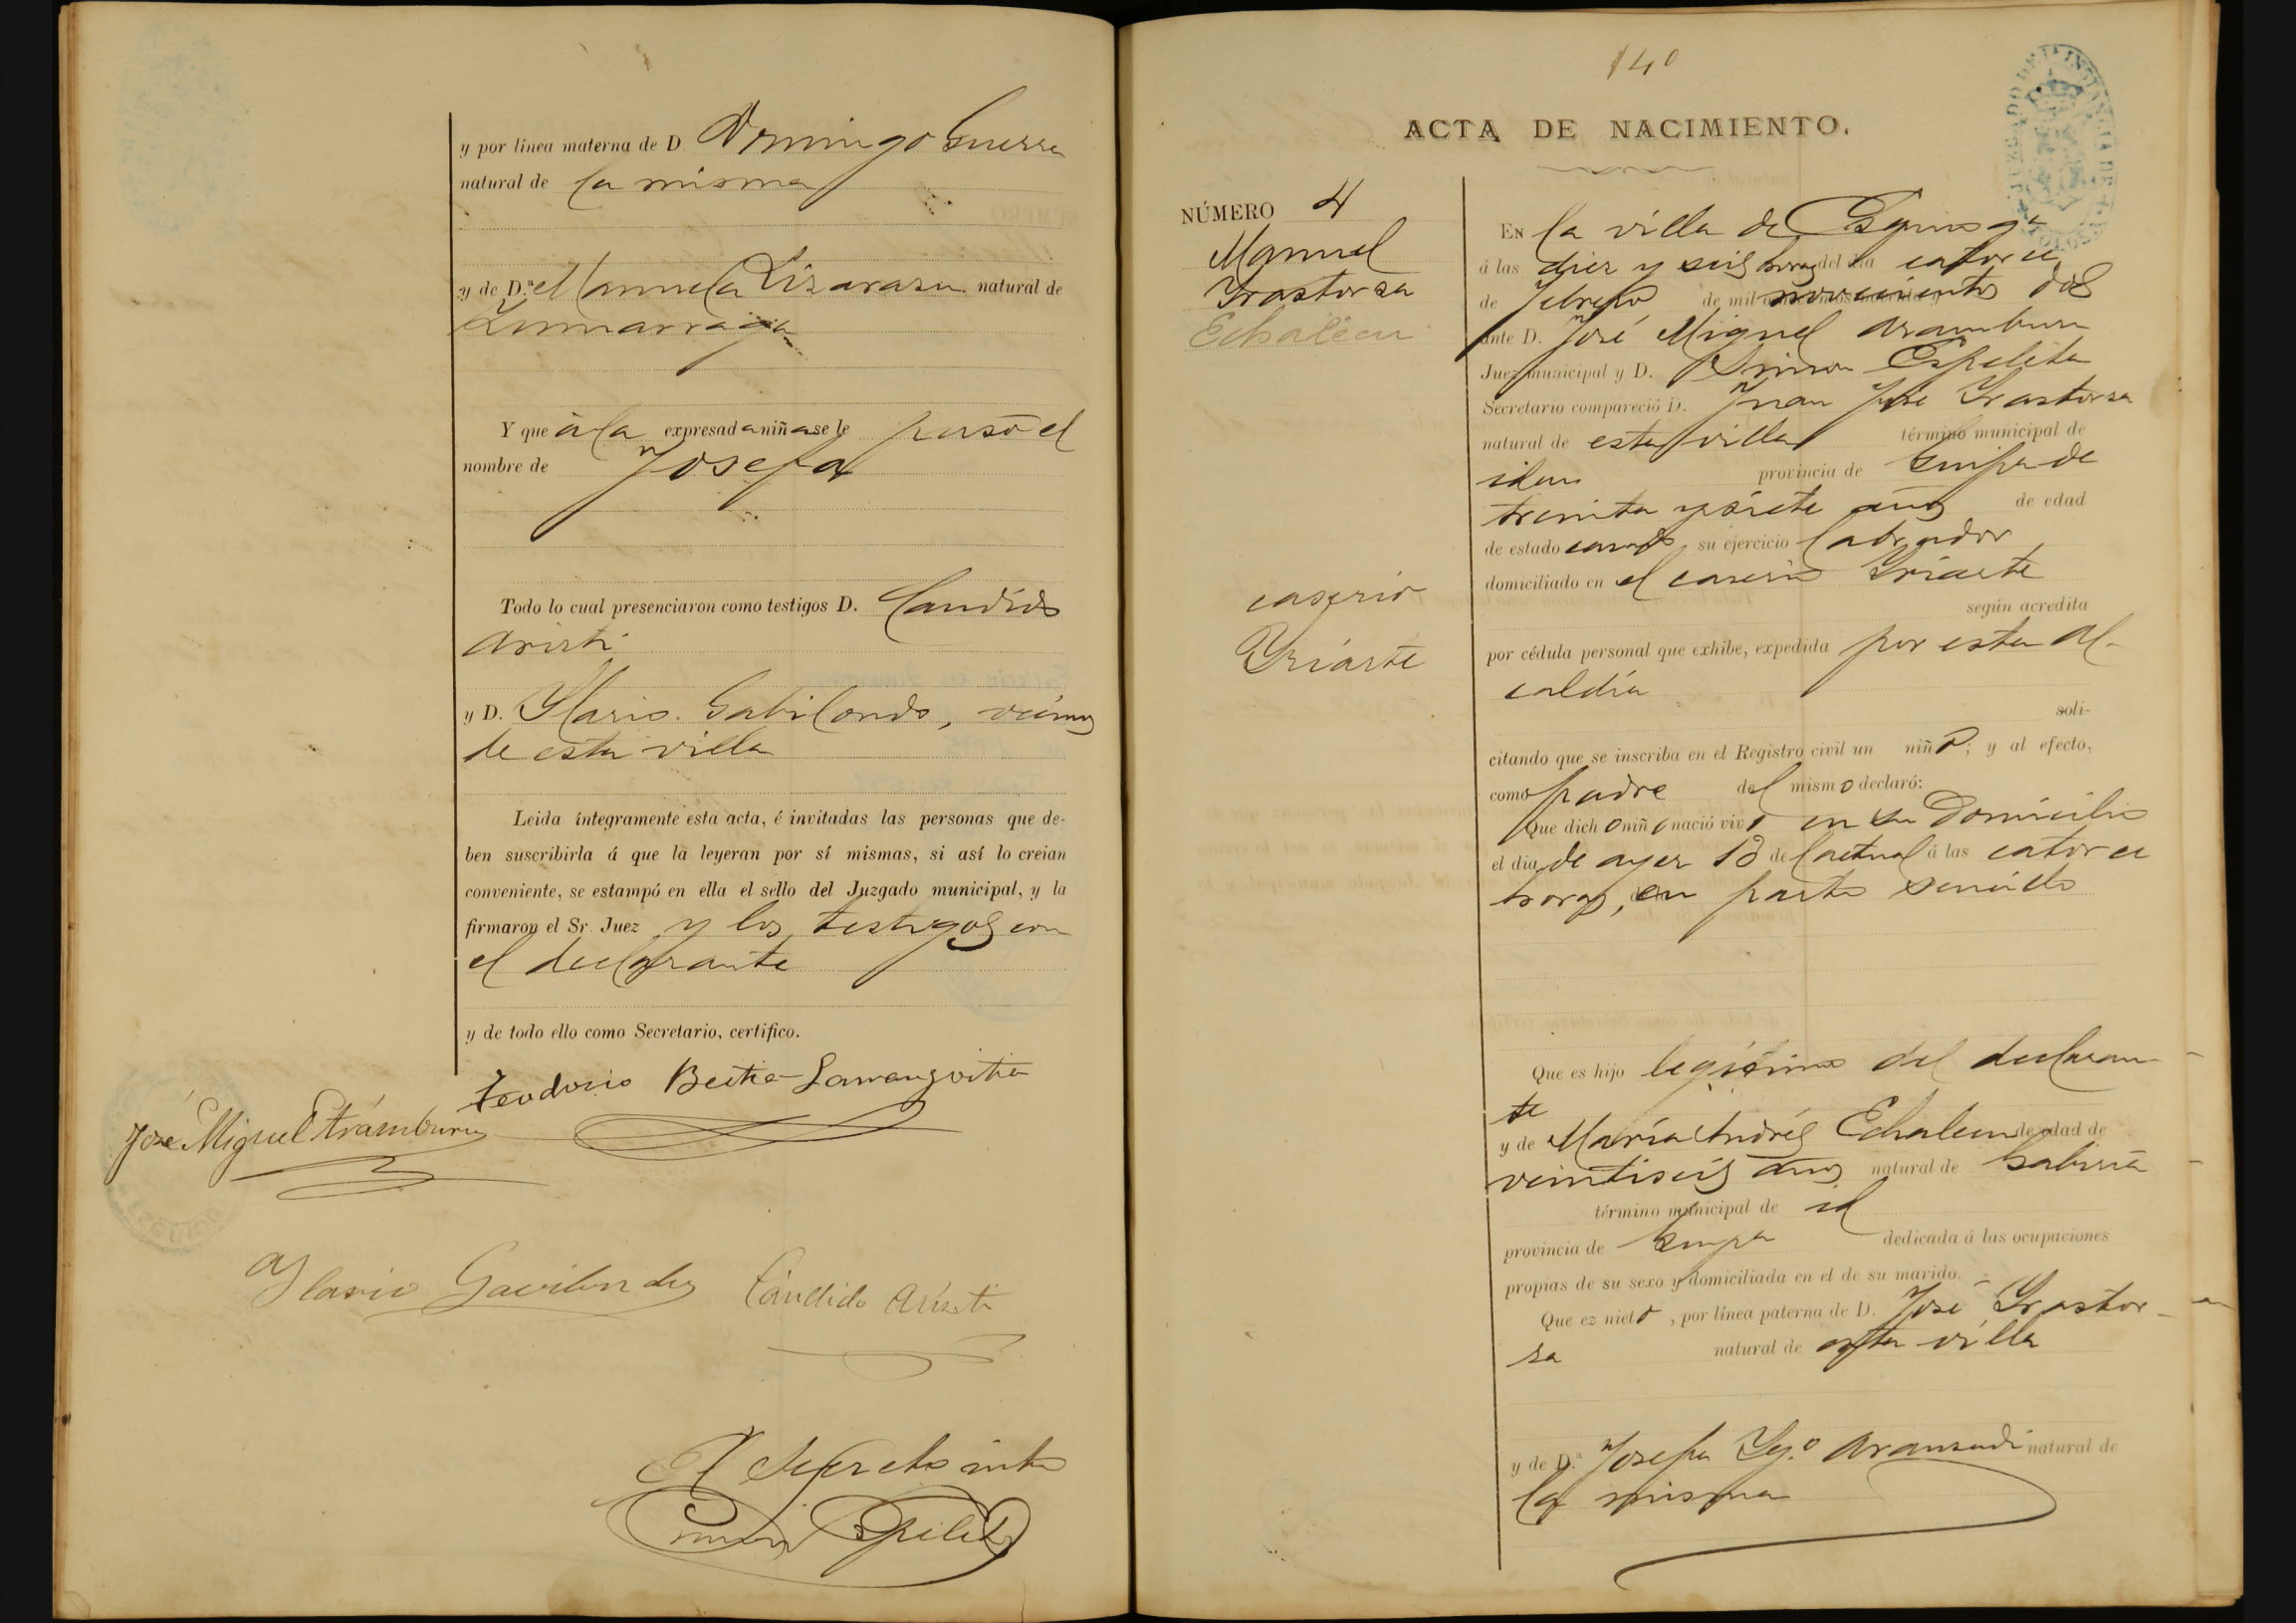 y por línea materna de D Domingo Guerra
natural de la misma
y de D.ª Manuela Lizarazu natural de
Zumarraga
Y que á la expresada niña se le puso el
nombre de Josefa
Todo lo cual presenciaron como testigos D. Candido
Aristi
y D. Ylario Gabilondo, vecinos
de esta villa
Leida íntegramente esta acta, é invitadas las personas que de-
ben suscribirla á que la leyeran por sí mismas, si así lo creian
conveniente, se estampó en ella el sello del Juzgado municipal, y la
firmaron el Sr. Juez y los testigos con
el declarante
y de todo ello como Secretario, certifico.
Teodorio Beitia-Larrangoitia
José Miguel Arámburu
Ylario Gavilondo Cándido Aristi
El Secretario
Simon Espelita
140
ACTA DE NACIMIENTO.
NÚMERO 4
Manuel
Yrastorza
Echalecu
caserio
Yriarte
EN la villa de
á las diez y seis horas del dia catorce
de Febrero de mil novecientos dos
ante D. José Miguel Aramburu
Juez municipal y D. Simon Espelita
Secretario compareció D. Juan José Yrastorza
natural de esta villa término municipal de
idem provincia de Guipa de
treinta y siete años de edad
de estado casado su ejercicio labrador
domiciliado en el caserio Yriarte
según acredita
por cédula personal que exhibe, expedida por esta Al-
caldía
soli-
citando que se inscriba en el Registro civil un niño; y al efecto,
como padre del mismo declaró:
Que dicho niño nació vivo en su Domicilio
el dia de ayer 13 del actual á las catorce
horas, en parto sencillo
Que es hijo legítimo del declaran-
te
y de María Andrés Echalecu de edad de
veintiseis años natural de Gabiria
término municipal de id
provincia de Guipa dedicada á las ocupaciones
propias de su sexo y domiciliada en el de su marido.
Que ez nieto, por línea paterna de D. José Yrastor-
za natural de esta villa
y de D.ª Josefa Yg.ª Aranzadi natural de
la misma